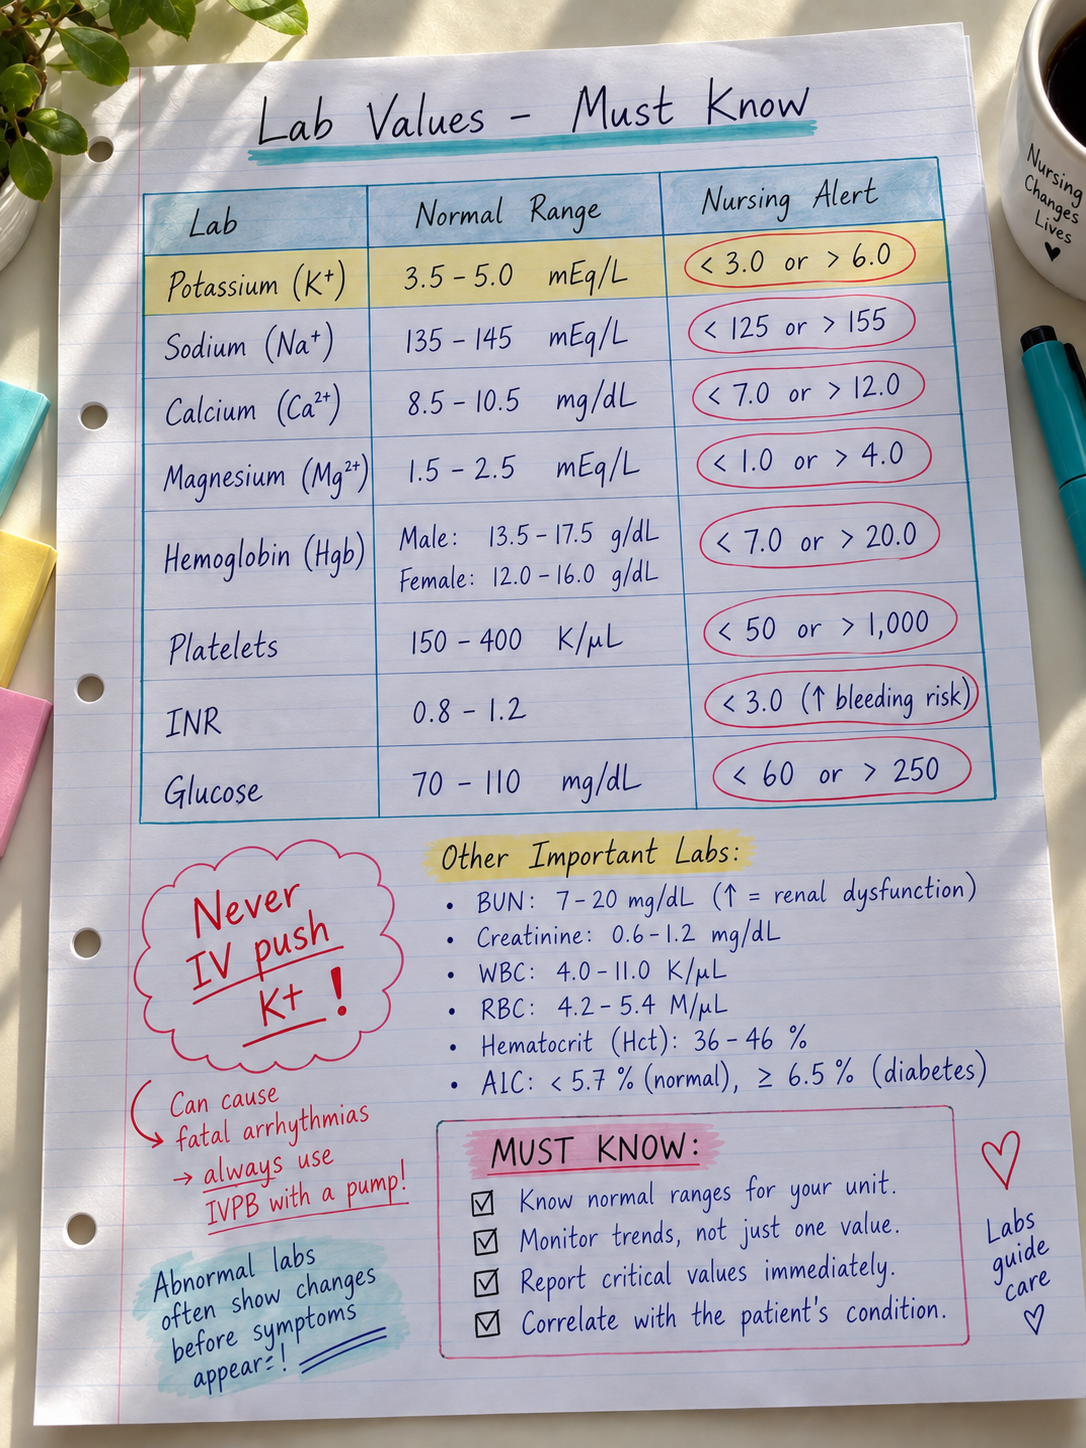 Lab Values - Must Know
Lab Normal Range Nursing Alert
Potassium (K+) 3.5 - 5.0 mEq/L < 3.0 or > 6.0
Sodium (Na+) 135 - 145 mEq/L < 125 or > 155
Calcium (Ca2+) 8.5 - 10.5 mg/dL < 7.0 or > 12.0
Magnesium (Mg2+) 1.5 - 2.5 mEq/L < 1.0 or > 4.0
Hemoglobin (Hgb) Male: 13.5 - 17.5 g/dL < 7.0 or > 20.0
Female: 12.0 - 16.0 g/dL
Platelets 150 - 400 K/μL < 50 or > 1,000
INR 0.8 - 1.2 < 3.0 (↑ bleeding risk)
Glucose 70 - 110 mg/dL < 60 or > 250
Never
IV push
K+ !
Can cause
fatal arrhythmias
→ always use
IVPB with a pump!
Abnormal labs
often show changes
before symptoms
appear:!
Other Important Labs:
• BUN: 7-20 mg/dL (↑ = renal dysfunction)
• Creatinine: 0.6-1.2 mg/dL
• WBC: 4.0-11.0 K/μL
• RBC: 4.2-5.4 M/μL
• Hematocrit (Hct): 36-46 %
• A1C: < 5.7 % (normal), ≥ 6.5 % (diabetes)
MUST KNOW:
☑ Know normal ranges for your unit.
☑ Monitor trends, not just one value.
☑ Report critical values immediately.
☑ Correlate with the patient's condition.
♡
Labs
guide
care
♡
Nursing
Changes
Lives
♥